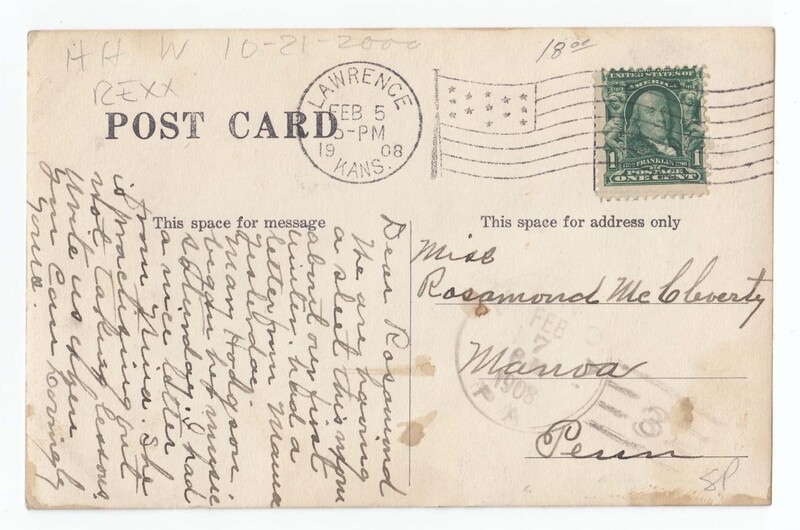 HH W 10-21-2000
REXX
18 00
LAWRENCE
FEB 5
5-PM
1908
KANS.
UNITED STATES OF
AMERICA
1 FRANKLIN 1
POSTAGE
ONE CENT
POST CARD
This space for message
This space for address only
Dear Rosamond
We are having
a sleet this morn
about our first
winter. had a
letter from Mama
yesterday.
Mary Hodgson
began her music
saturday. I had
a nice letter
from Nina. She
is practicing but
not taking lessons.
Write us when
you can Lovingly
Miss
Rosamond McCleverty
Manoa
Penn
FEB
7
1908
PA
3
SP